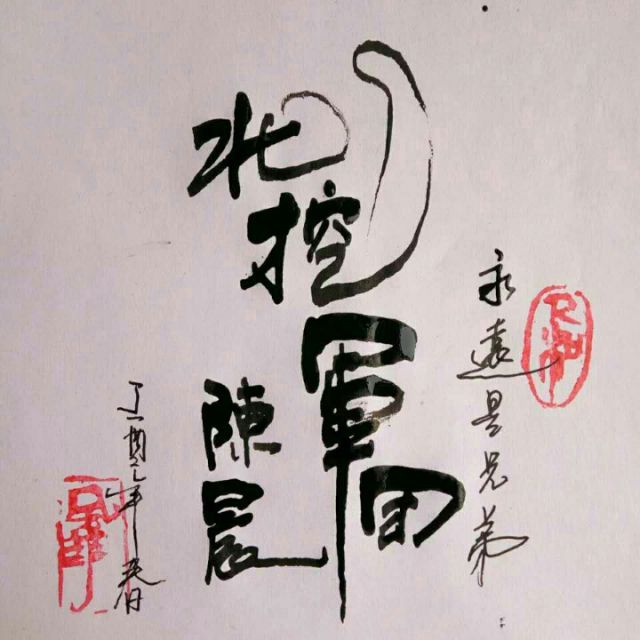 永遠是兄弟
北控
軍团
陳晨
丁酉之年春